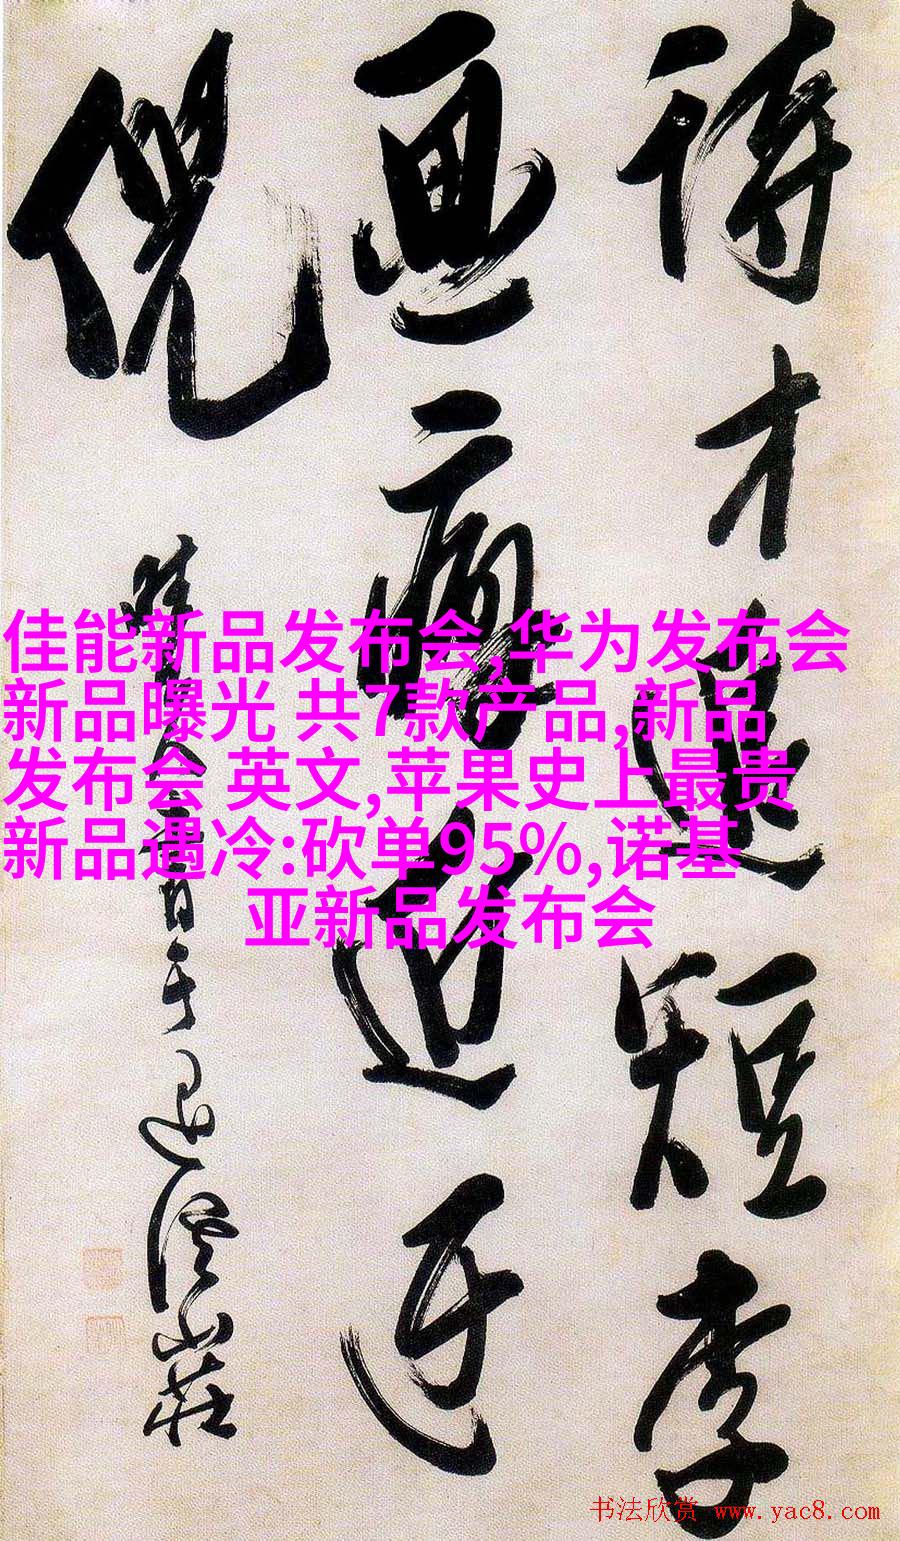 诗才短李
画迂
倪
山莊
佳能新品发布会,华为发布会
新品曝光 共7款产品,新品
发布会 英文,苹果史上最贵
新品遇冷:砍单95%,诺基
亚新品发布会
书法欣赏 www.yac8.com